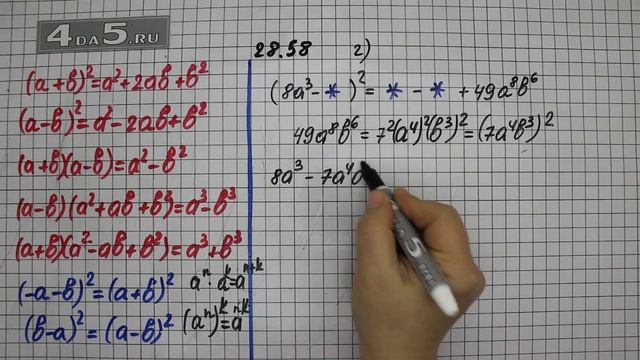 4DA5.RU
28.58 г)
(a+b)²=a²+2ab+b²
(a-b)²=a²-2ab+b²
(a+b)(a-b)=a²-b²
(a-b)(a²+ab+b²)=a³-b³
(a+b)(a²-ab+b²)=a³+b³
(-a-b)²=(a+b)²
(b-a)²=(a-b)²
aⁿ·aᵏ=aⁿ⁺ᵏ
(aⁿ)ᵏ=aⁿᵏ
(8a³-* )²= * - * +49a⁸b⁶
49a⁸b⁶=7²(a⁴)²(b³)²=(7a⁴b³)²
8a³-7a⁴